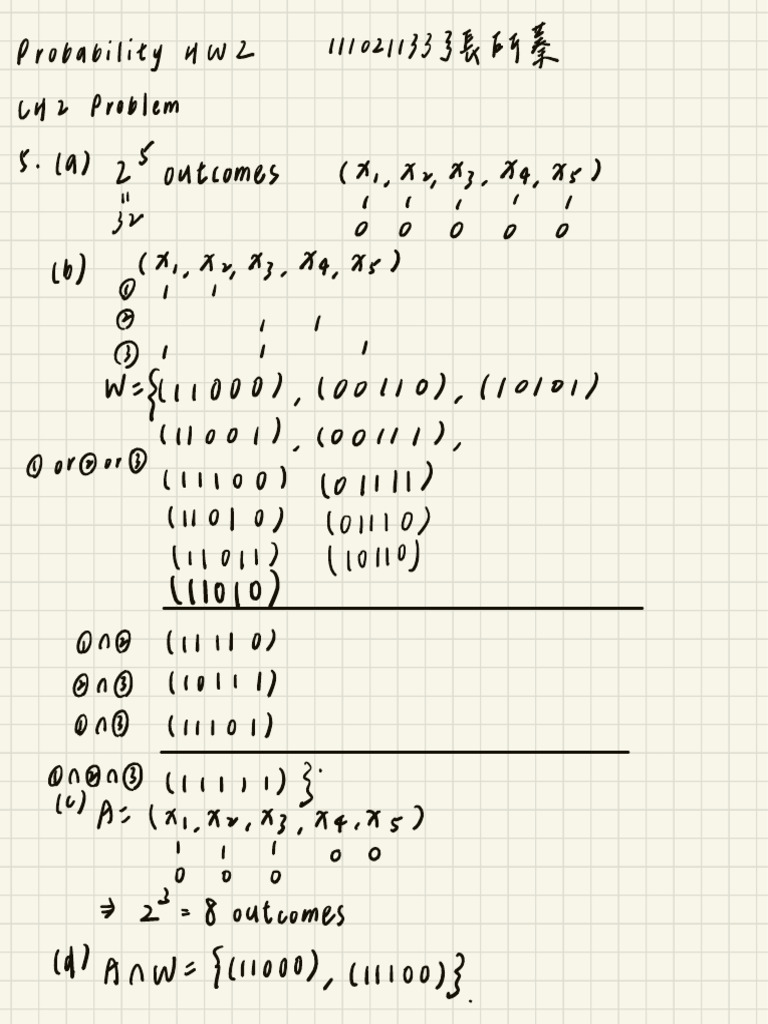 Probability HW2 1110211333 長
CH2 Problem
5. (a) 2^5 outcomes (x1, x2, x3, x4, x5)
" 1 1 1 1 1
32 0 0 0 0 0
(b) (x1, x2, x3, x4, x5)
① 1 1
② 1 1
③ 1 1 1
W={(11000), (00110), (10101)
(11001), (00111),
① or ② or ③ (11100) (01111)
(11010) (01110)
(11011) (10110)
(11010)
①∩② (11110)
②∩③ (10111)
①∩③ (11101)
①∩②∩③ (11111)}.
(c) A= (x1, x2, x3, x4, x5)
1 1 1 0 0
0 0 0
⇒ 2^3 = 8 outcomes
(d) A∩W = {(11000), (11100)}.